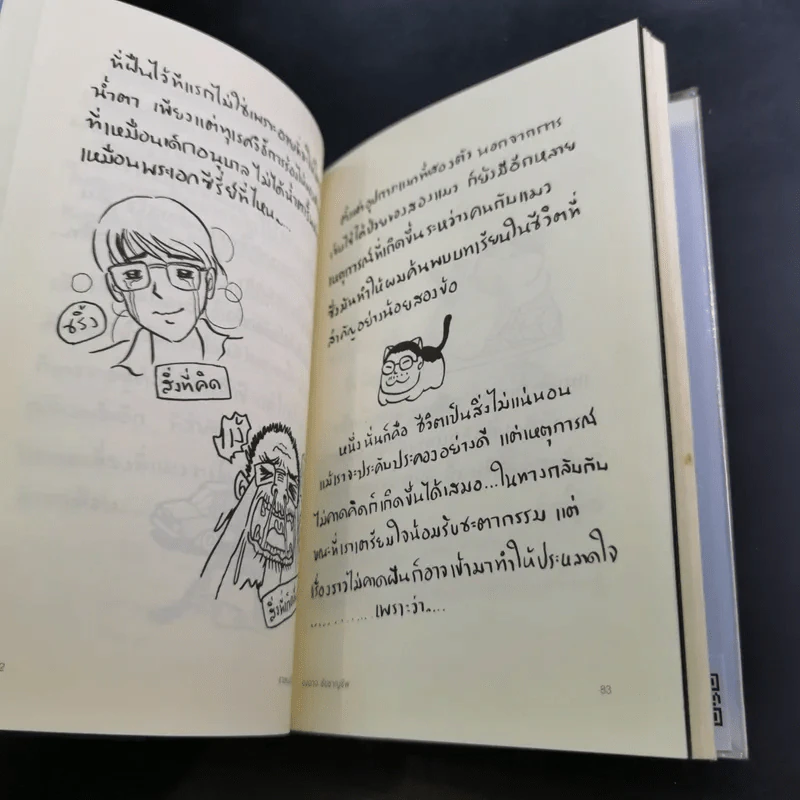 ที่ฝืนไว้ทีแรกไม่ใช่เพราะอาย
น้ำตา เพียงแต่ทุเรศวิธีการร้องไห้
ที่เหมือนเด็กอนุบาล ไม่ได้น้ำตา
เหมือนพระเอกซีรี่ย์ที่ไหน....
ซริ้ง
สิ่งที่คิด
แง้
ตั้งแต่อุปการะแมวทั้งสองตัว นอกจากการ
เจ็บไข้ได้ป่วยของสองแมว ก็ยังมีอีกหลาย
เหตุการณ์ที่เกิดขึ้นระหว่างคนกับแมว
ซึ่งมันทำให้ผมค้นพบบทเรียนในชีวิตที่
สำคัญอย่างน้อยสองข้อ
หนึ่งนั่นก็คือ ชีวิตเป็นสิ่งไม่แน่นอน
แม้เราจะประคับประคองอย่างดี แต่เหตุการณ์
ไม่คาดคิดก็เกิดขึ้นได้เสมอ...ในทางกลับกัน
ขณะที่เราเตรียมใจน้อมรับชะตากรรม แต่
เรื่องราวไม่คาดฝันก็อาจเข้ามาทำให้ประหลาดใจ
เพราะว่า....
83